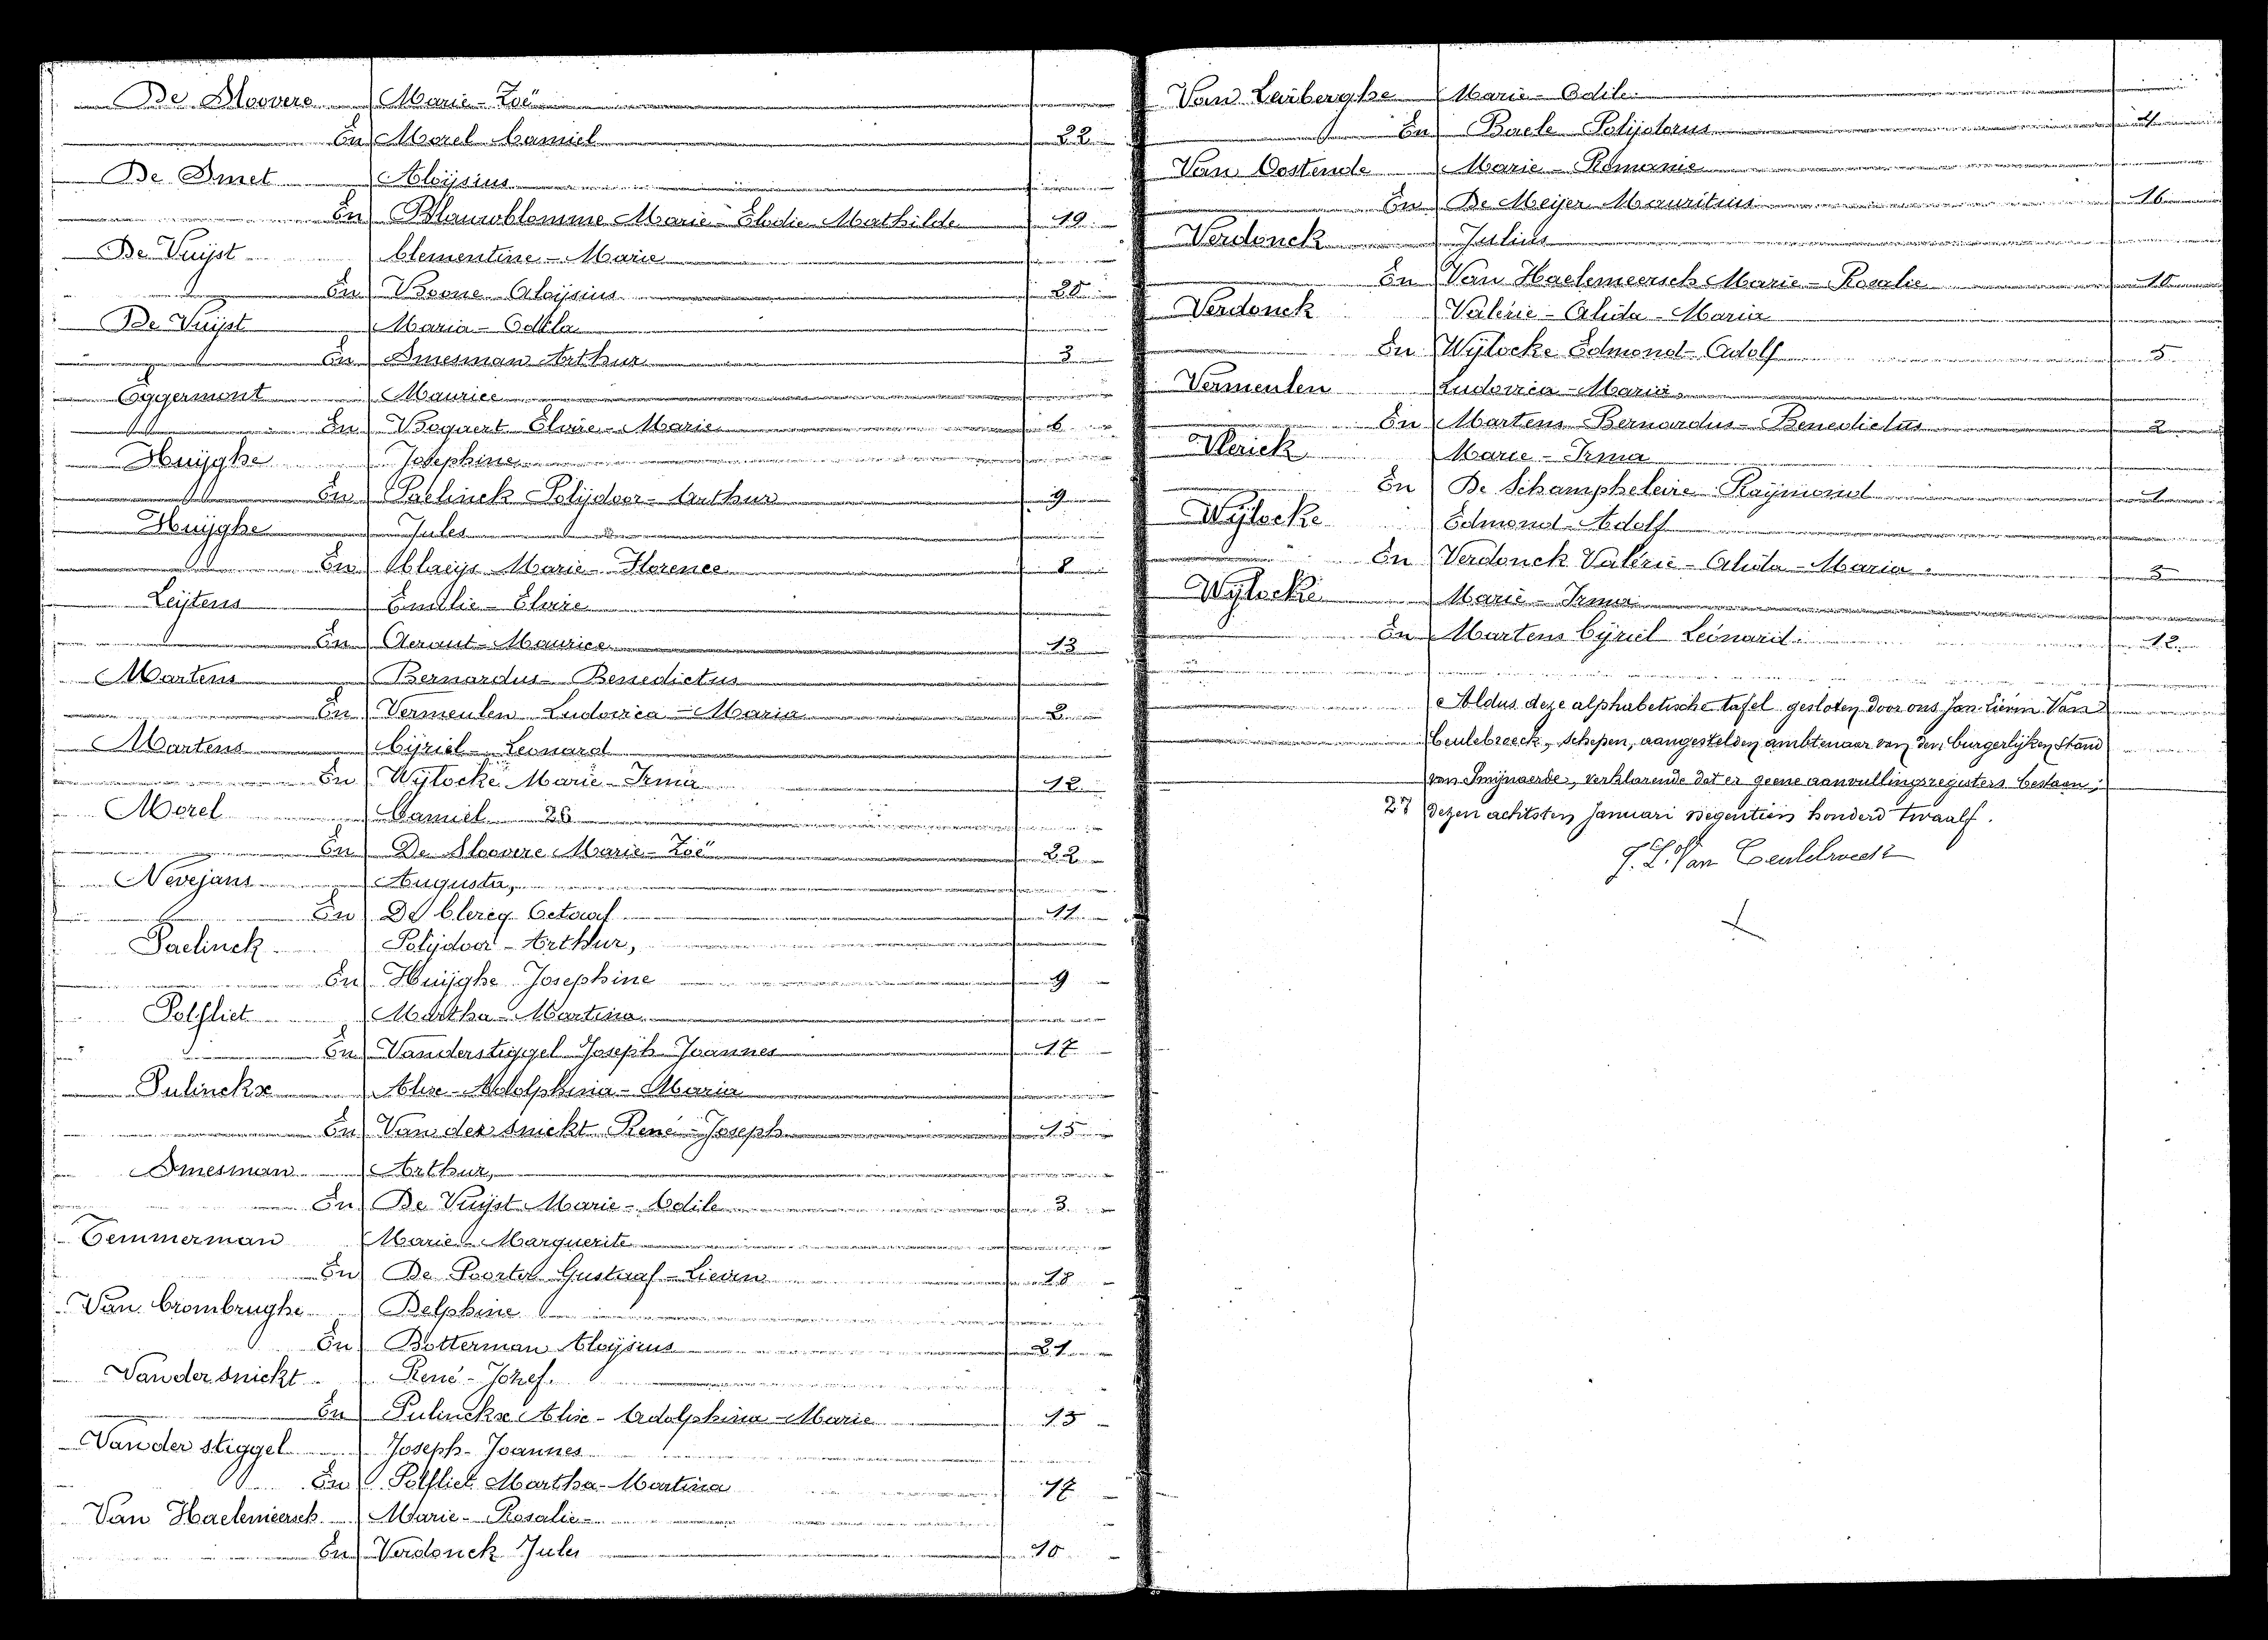 De Moovere Marie - Zoë
En Morel Camiel 22
De Smet Aloÿsius
En Blauwblomme Marie - Elodie Mathilde 19
De Vuÿst Clementine - Marie
En Boone Aloÿsius 20
De Vuÿst Maria - Odila
En Smesman Arthur 3
Eggermont Maurice
En Bogaert Elvire - Marie 6
Huÿghe Josephine
En Paelinck Polÿdoor - Arthur 9
Huÿghe Jules
En Claeÿs Marie - Florence 8
Leÿtens Emilie - Elvire
En Geraut - Maurice 13
Martens Bernardus - Benedictus
En Vermeulen Ludovica - Maria 2
Martens Cÿriel - Leonard
En Wÿlocke Marie - Irma 12
Morel Camiel 26
En De Moovere Marie - Zoë 22
Nevejans Augusta,
En De Clercq Octaaf 11
Paelinck Polÿdoor - Arthur,
En Huÿghe Josephine 9
Polfliet Martha - Martina
En Vanderstiggel Joseph Joannes 17
Pulinckx Alice - Adolphina - Maria
En Van der Snickt René - Joseph 15
Smesman Arthur,
En De Vuÿst Marie - Odile 3
Temmerman Marie Marguerite
En De Poorter Gustaaf - Lievin 18
Van Crombrughe Delphine
En Botterman Aloÿsius 21
Van der Snickt René - Jozef.
En Pulinckx Alice - Adolphina - Marie 15
Van der Stiggel Joseph - Joannes
En Polfliet Martha - Martina 17
Van Haelemeersch Marie - Rosalie
En Verdonck Jules 10
Van Laeberghe Marie - Odile
En Baele Polÿdorus 4
Van Oostende Marie - Romanie
En De Meÿer Mauritius 16
Verdonck Julius
En Van Haelemeersch Marie - Rosalie 10
Verdonck Valérie - Alida - Maria
En Wÿlocke Edmond - Adolf 5
Vermeulen Ludovica - Maria
En Martens Bernardus - Benedictus 2
Vlerick Marie - Irma
En De Schampheleire Raÿmond 1
Wÿlocke Edmond - Adolf
En Verdonck Valérie - Alida - Maria 5
Wÿlocke Marie - Irma
En Martens Cÿriel Leonard. 12
Aldus deze alphabetische tafel gesloten door ons Jan Lievin Van
Ceulebroeck, Schepen, aangestelden ambtenaar van den burgerlÿken Stand
van Smÿnaerde, verklarende dat er geene aanvullingsregisters bestaan;
27 dezen achtsten Januari negentien honderd twaalf.
J. L. Van Ceulebroeck